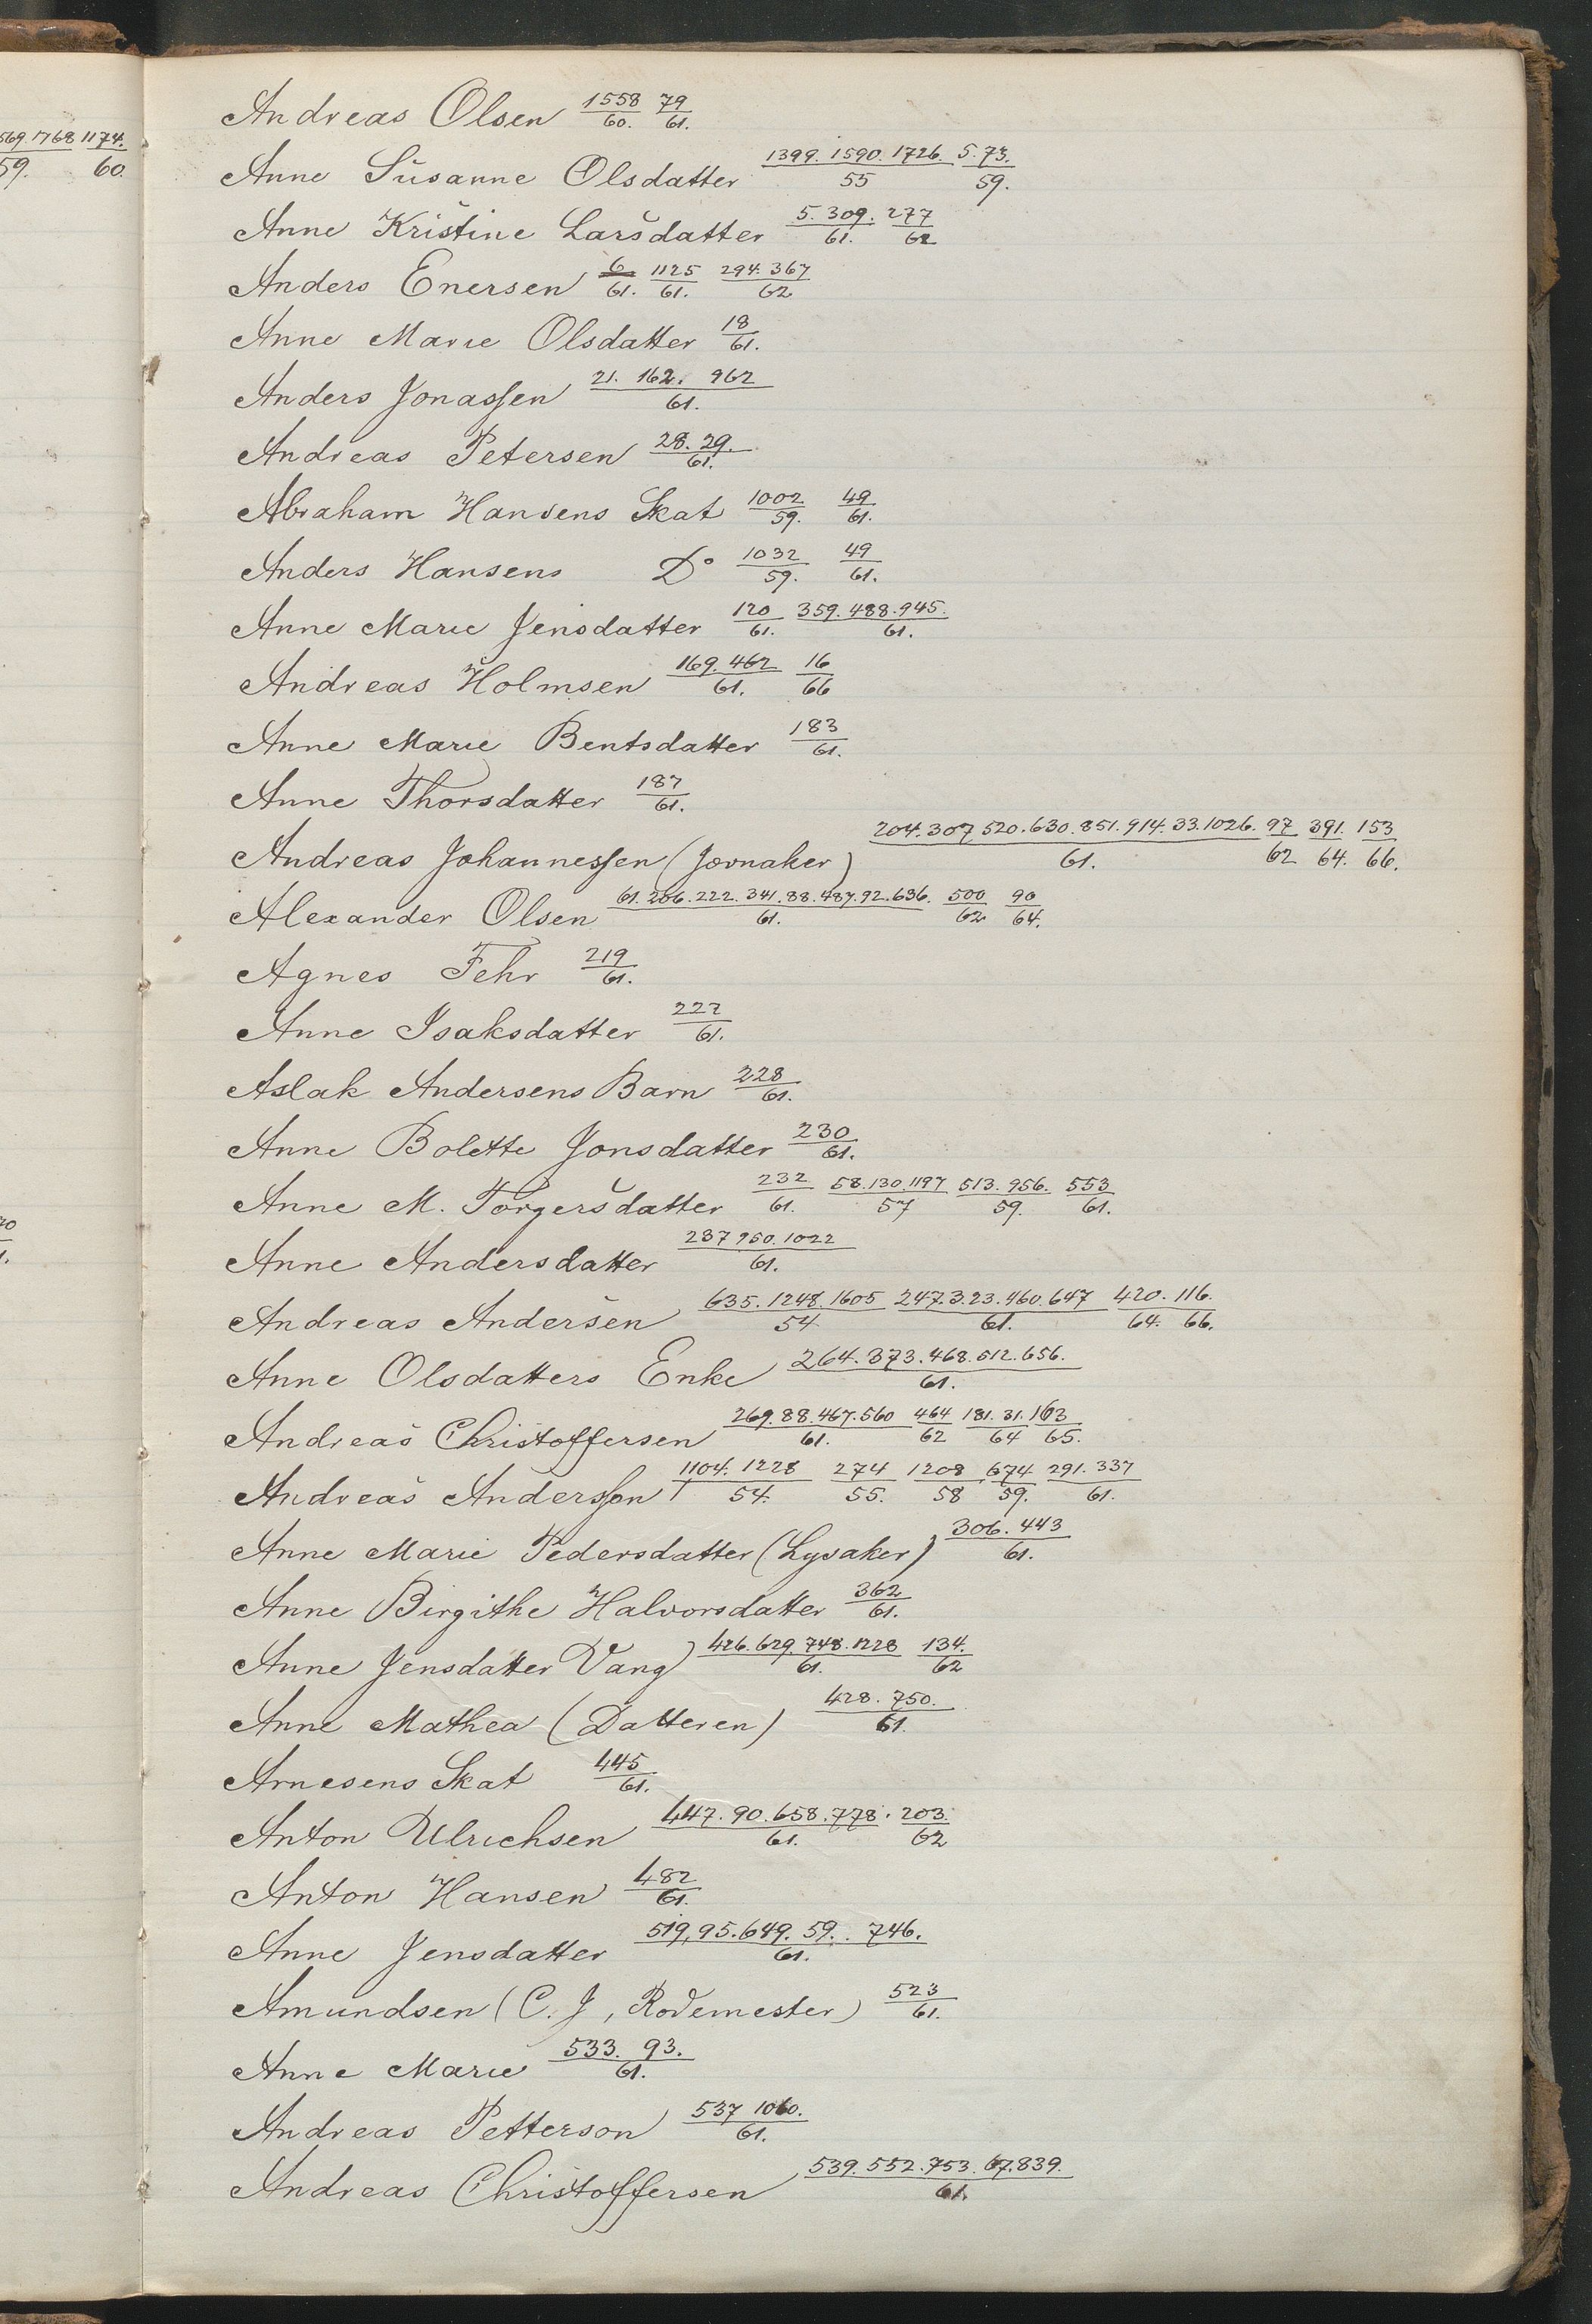 569. 1768 1174.
59. 60.
Andreas Olsen 1558/60. 79/61.
Anne Susanne Olsdatter 1399. 1590. 1726./55 5. 73./59.
Anne Kristine Larsdatter 5. 309./61. 277/62
Anders Enersen 6/61. 1125/61. 294. 367/62
Anne Marie Olsdatter 18/61.
Anders Jonassen 21. 162. 962/61.
Andreas Petersen 28. 29./61.
Abraham Hansens Skat 1002/59. 49/61.
Anders Hansens Do 1032/59. 49/61.
Anne Marie Jensdatter 120/61. 359. 488. 945./61.
Andreas Holmsen 169. 462/61. 16/66
Anne Marie Bentsdatter 183/61.
Anne Thorsdatter 187/61.
Andreas Johannessen (Jovnaker) 204. 307 520. 630. 851. 914. 33. 1026./61. 97/62 391./64. 153/66.
Alexander Olsen 61. 206. 222. 341. 88. 487. 92. 636./61. 500/62 90/64.
Agnes Fehr 219/61.
Anne Isaksdatter 227/61.
Aslak Andersens Barn 228/61.
Anne Bolette Jonsdatter 230/61.
Anne M. Torgersdatter 232/61. 58. 130. 1197/57 513. 956./59. 553/61.
Anne Andersdatter 237 950. 1022/61.
Andreas Andersen 635. 1248. 1605/54 247. 3. 23. 460. 647/61. 420./64. 116./66.
Anne Olsdatters Enke 264. 373. 468. 512. 656./61.
Andreas Christoffersen 269. 88. 467. 560/61. 464/62 181. 31./64 163/65.
Andreas Andersson 1104. 1228/54. 274/55. 1208/58 674/59. 291. 337/61.
Anne Marie Pedersdatter (Lysaker) 306. 443/61.
Anne Birgithe Halvorsdatter 362/61.
Anne Jensdatter Vang) 426. 629. 748. 1228/61. 134./62
Anne Mathea (Datteren) 428. 750./61.
Arnesens Skat 445/61.
Anton Ulrichsen 447. 90. 658. 778./61. 203./62
Anton Hansen 482/61.
Anne Jensdatter 519, 95. 649. 59. 746./61.
Amundsen (C. J, Rodemester) 523/61.
Anne Marie 533. 93./61.
Andreas Petterson 537 1060./61.
Andreas Christoffersen 539. 552. 753. 67. 839./61.